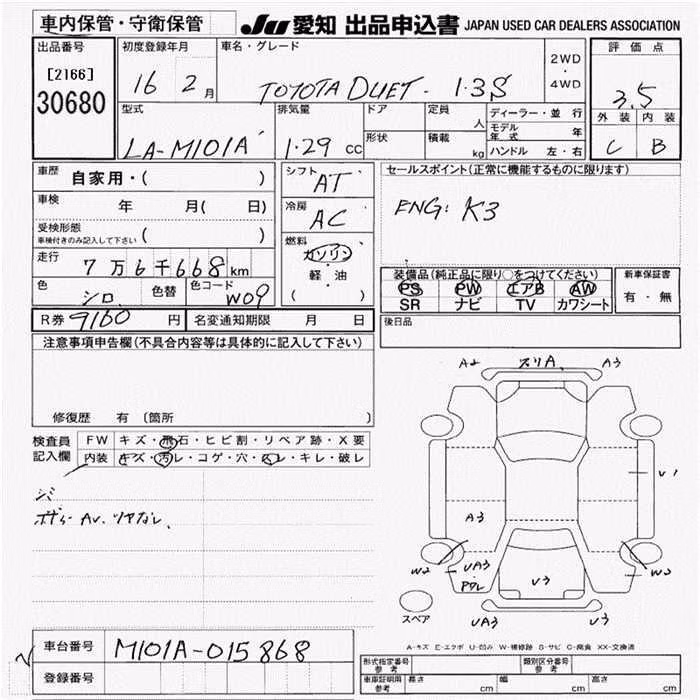 車内保管・守衛保管 JU 愛知 出品申込書 JAPAN USED CAR DEALERS ASSOCIATION
出品番号
[2166]
30680
初度登録年月
16 2月
車名・グレード
TOYOTA DUET - 1.3S
2WD
・
4WD
評価点
3.5
外装 内装
C B
型式
LA-M101A
排気量
1.29 CC
ドア
形状
定員
人
積載
kg
ディーラー・並行
モデル年式 年
ハンドル 左・右
車歴
自家用・( )
車検 年 月( 日)
受検形態
車検付きのみ記入して下さい ( )
走行 7万6千668km
色 シロ 色替 色コード W09
シフト AT
冷房 AC
燃料
ガソリン
・
軽・油
( )
セールスポイント(正常に機能するものに限ります)
ENG: K3
装備品(純正品に限り○をつけてください)
PS PW エアB AW
SR ナビ TV カワシート
新車保証書
有・無
R券 9160 円 名変通知期限 月 日
後日品
注意事項申告欄(不具合内容等は具体的に記入して下さい)
修復歴 有 〔箇所
検査員
記入欄
FW キズ・飛石・ヒビ割・リペア跡・X要
内装 キズ・汚レ・コゲ・穴・スレ・キレ・破レ
シミ
A2 スリA A3
U1
A3
W2 UA3 W3
U3
UA3 U3
スペア
A-キズ E-エクボ U-凹み W-補修跡 S-サビ C-腐食 XX-交換済
車台番号 M101A-015868
登録番号
形式指定番号
参考
類別区分番号
参考
車庫証明用
参考
長さ cm 幅 cm 高さ cm